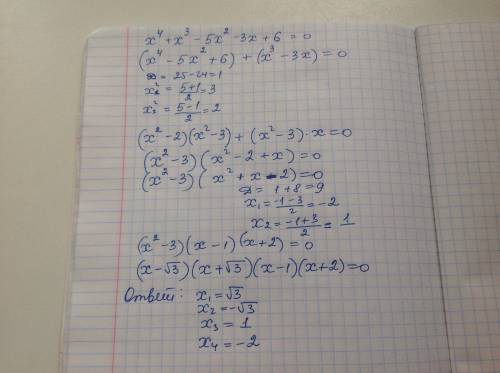 x⁴ + x³ - 5x² - 3x + 6 = 0
(x⁴ - 5x² + 6) + (x³ - 3x) = 0
D = 25 - 24 = 1
x₂² = (5+1)/2 = 3
x₁² = (5-1)/2 = 2
(x² - 2)(x² - 3) + (x² - 3) · x = 0
(x² - 3)(x² - 2 + x) = 0
(x² - 3)(x² + x - 2) = 0
D = 1 + 8 = 9
x₁ = (-1-3)/2 = -2
x₂ = (-1+3)/2 = 1
(x² - 3)(x - 1)(x + 2) = 0
(x - √3)(x + √3)(x - 1)(x + 2) = 0
Ответ: x₁ = √3
x₂ = -√3
x₃ = 1
x₄ = -2